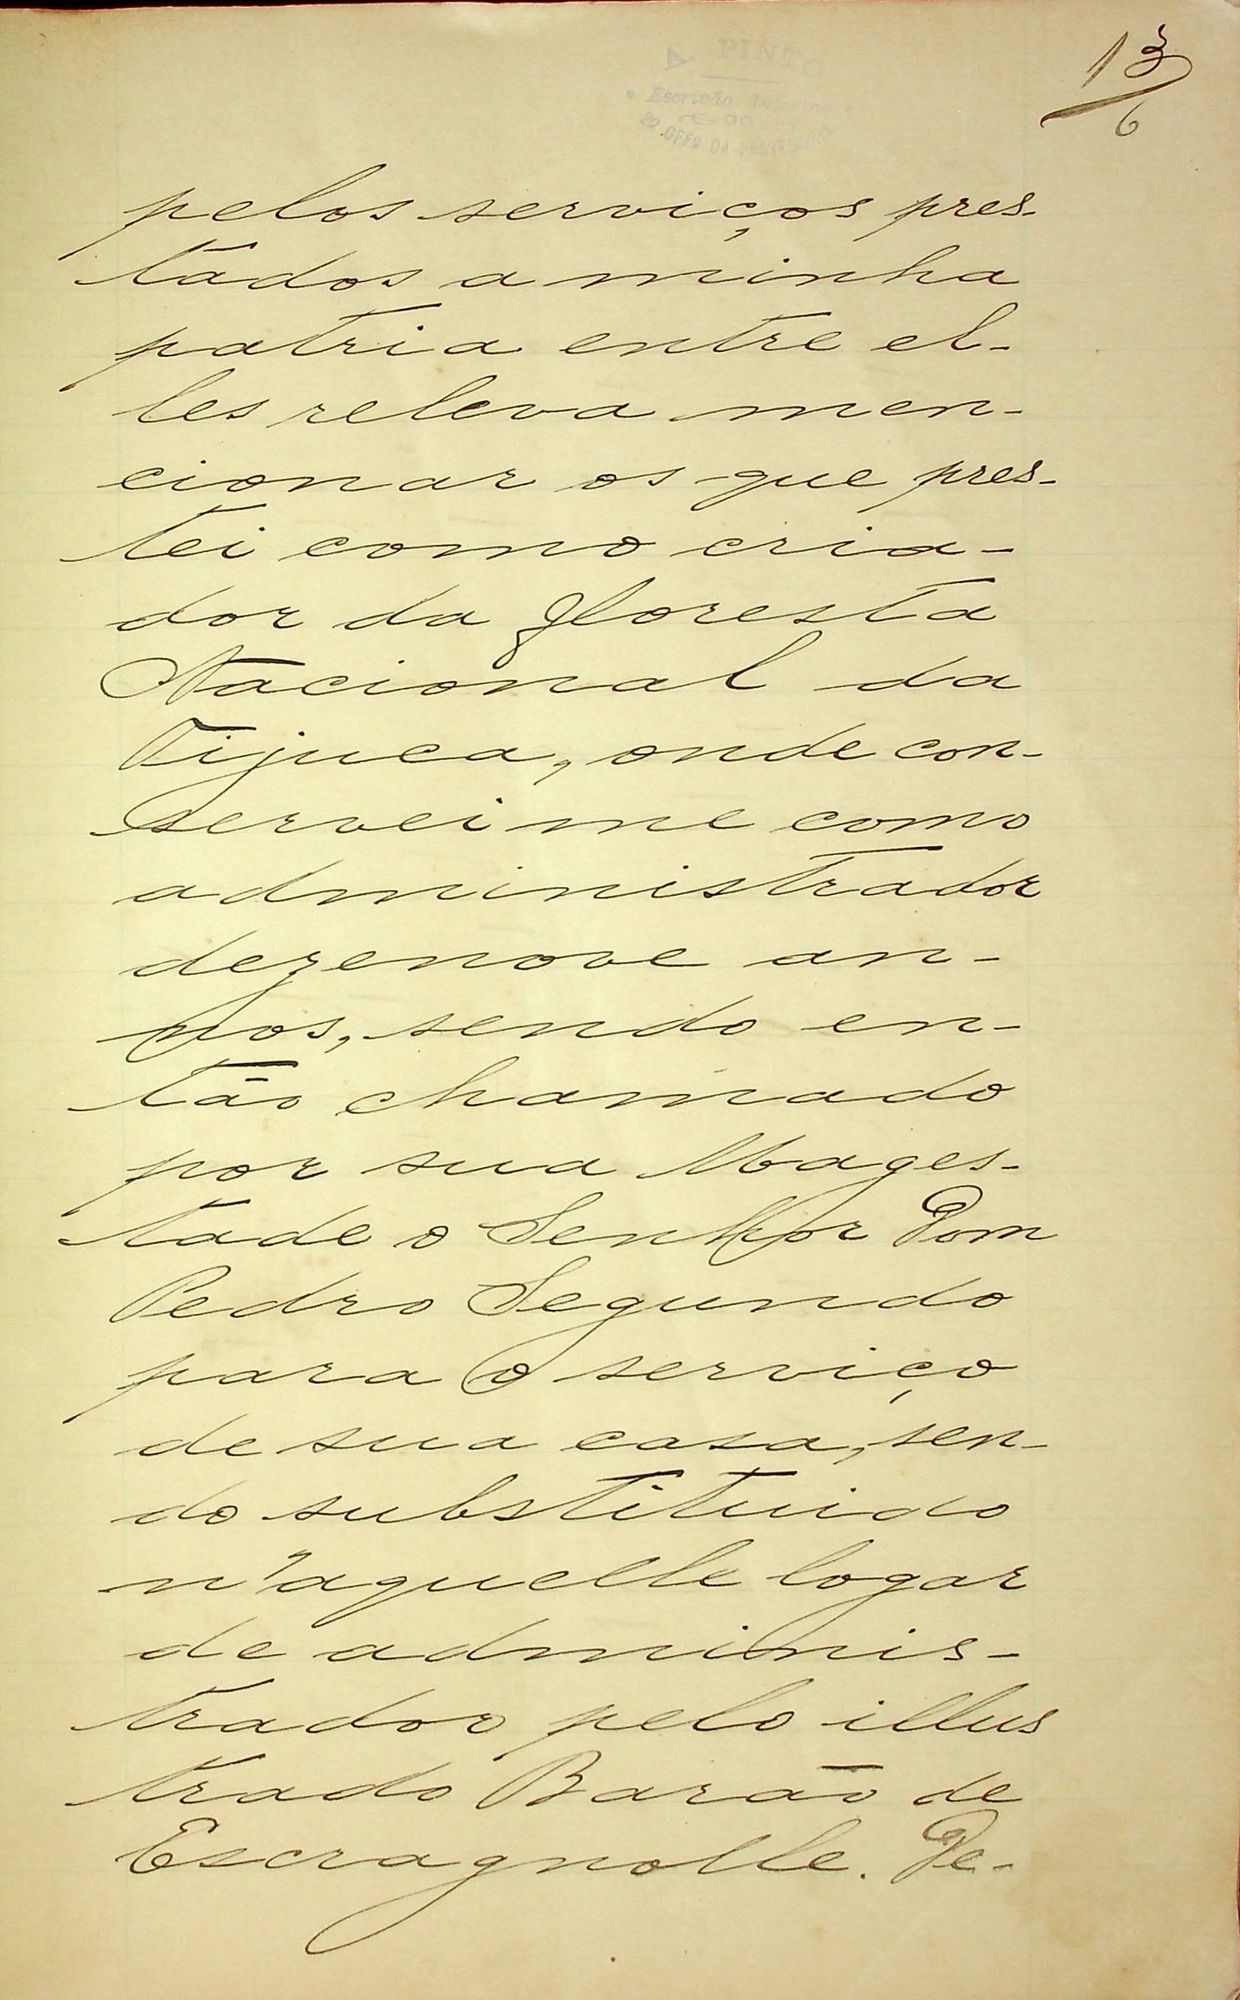 13
6
A PINTO
Escrivão Interino
DO
2º OFFº DA PROVEDORIA
pelos serviços pres-
tados a minha
patria entre el-
les releva men-
cionar os que pres-
tei como cria-
dor da floresta
Nacional da
Tijuca, onde con-
servei me como
administrador
dezenove an-
nos, sendo en-
tão chamado
por sua Mages-
tade o Senhor Dom
Pedro Segundo
para o serviço
de sua casa, sen-
do substituido
n'aquelle logar
de adminis-
trador pelo illus
trado Barão de
Escragnolle. De-